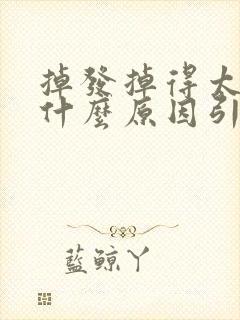 掉發掉得太
什麼原因引
藍鯨丫